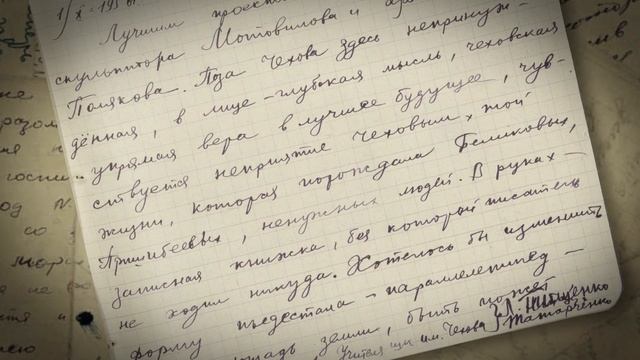 1/X-195
Лучшим проектом
скульптора Мотовилова и
Полякова. Поза Чехова здесь непринуж-
дённая, в лице - глубокая мысль, чеховская
упрямая вера в лучшее будущее, чув-
ствуется неприятие Чеховым той
жизни, которая порождала Беликовых,
Пришибеевых, ненужных людей. В руках -
записная книжка, без которой писатель
не ходил никуда. Хотелось бы изменить
форму пьедестала - параллелепипед -
земли, быть может
Учителя шк им. Чехова
Татарченко